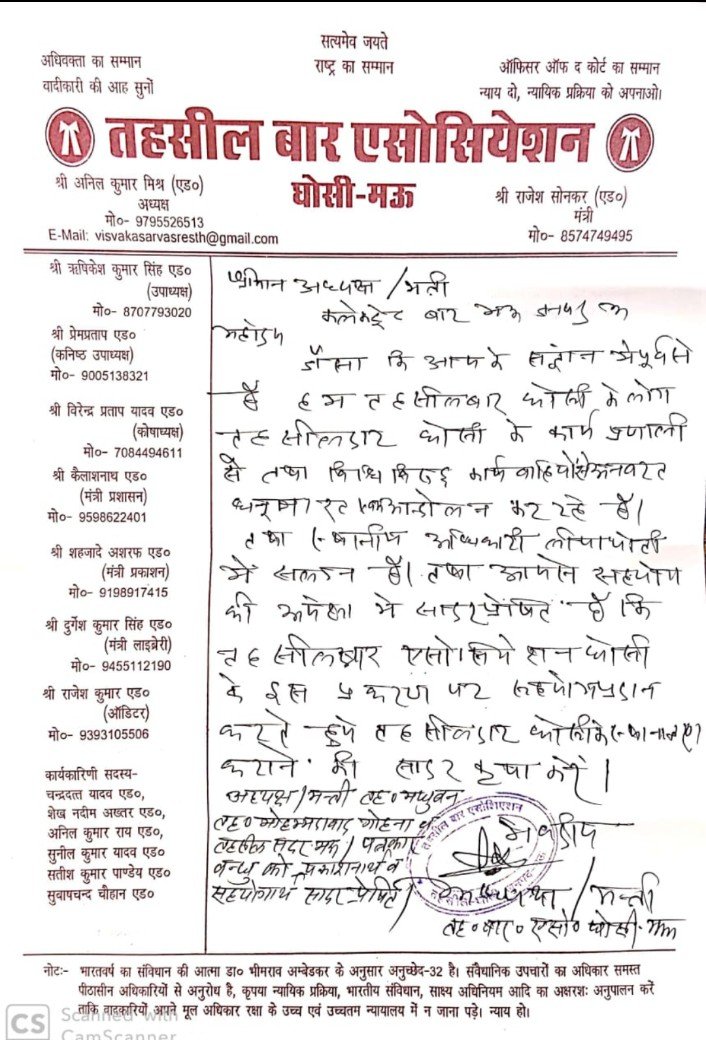 सत्यमेव जयते
अधिवक्ता का सम्मान
राष्ट्र का सम्मान
ऑफिसर ऑफ द कोर्ट का सम्मान
वादीकारी की आह सुनों
न्याय दो, न्यायिक प्रक्रिया को अपनाओ।
तहसील बार एसोसियेशन
घोसी-मऊ
श्री अनिल कुमार मिश्र (एड०)
अध्यक्ष
मो०- 9795526513
E-Mail: visvakasarvasresth@gmail.com
श्री राजेश सोनकर (एड०)
मंत्री
मो०- 8574749495
श्री ऋषिकेश कुमार सिंह एड०
(उपाध्यक्ष)
मो०- 8707793020
श्री प्रेमप्रताप एड०
(कनिष्ठ उपाध्यक्ष)
मो०- 9005138321
श्री विरेन्द्र प्रताप यादव एड०
(कोषाध्यक्ष)
मो०- 7084494611
श्री कैलाशनाथ एड०
(मंत्री प्रशासन)
मो०- 9598622401
श्री शहजादे अशरफ एड०
(मंत्री प्रकाशन)
मो०- 9198917415
श्री दुर्गेश कुमार सिंह एड०
(मंत्री लाइब्रेरी)
मो०- 9455112190
श्री राजेश कुमार एड०
(ऑडिटर)
मो०- 9393105506
कार्यकारिणी सदस्य-
चन्द्रदत्त यादव एड०,
शेख नदीम अख्तर एड०,
अनिल कुमार राय एड०,
सुनील कुमार यादव एड०
सतीश कुमार पाण्डेय एड०
सुबापचन्द चौहान एड०
श्रीमान अध्यक्ष / मंत्री
कलेक्ट्रेट बार मऊ जनपद मऊ
महोदय
जैसा कि आपके संज्ञान में पूर्व से
है हम तहसील बार घोसी के लोग
तहसीलदार घोसी के कार्य प्रणाली
से तथा विधि विरुद्ध कार्यवाहियों से अनवरत
आन्दोलन कर रहे हैं।
तथा स्थानीय अधिकारी लीपापोती
में संलग्न हैं। तथा आपसे सहयोग
की अपेक्षा में सादर प्रेषित है कि
तहसील बार एसोसियेशन घोसी
के इस प्रकरण पर सहयोग प्रदान
करते हुये तहसीलदार घोसी के स्थानान्तरण
कराने की सादर कृपा करें।
अध्यक्ष / मन्त्री तह० मधुबन
तह० मोहम्मदाबाद गोहना व
तहसील सदर मऊ / पत्रकार
बन्धु को प्रकाशनार्थ व
सहयोगार्थ सादर प्रेषित
भवदीय
अध्यक्ष / मन्त्री
तह० बार० एसो० घोसी-मऊ
तहसील बार एसोशिएशन
नोट:- भारतवर्ष का संविधान की आत्मा डा० भीमराव अम्बेडकर के अनुसार अनुच्छेद-32 है। संवैधानिक उपचारों का अधिकार समस्त
पीठासीन अधिकारियों से अनुरोध है, कृपया न्यायिक प्रक्रिया, भारतीय संविधान, साक्ष्य अधिनियम आदि का अक्षरशः अनुपालन करें
ताकि वादकारियों अपने मूल अधिकार रक्षा के उच्च एवं उच्चतम न्यायालय में न जाना पड़े। न्याय हो।
CS Scanned with
CamScanner